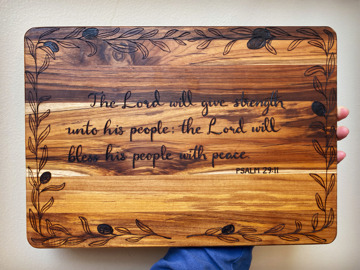 The Lord will give strength
unto his people; the Lord will
bless his people with peace.
PSALM 29:11